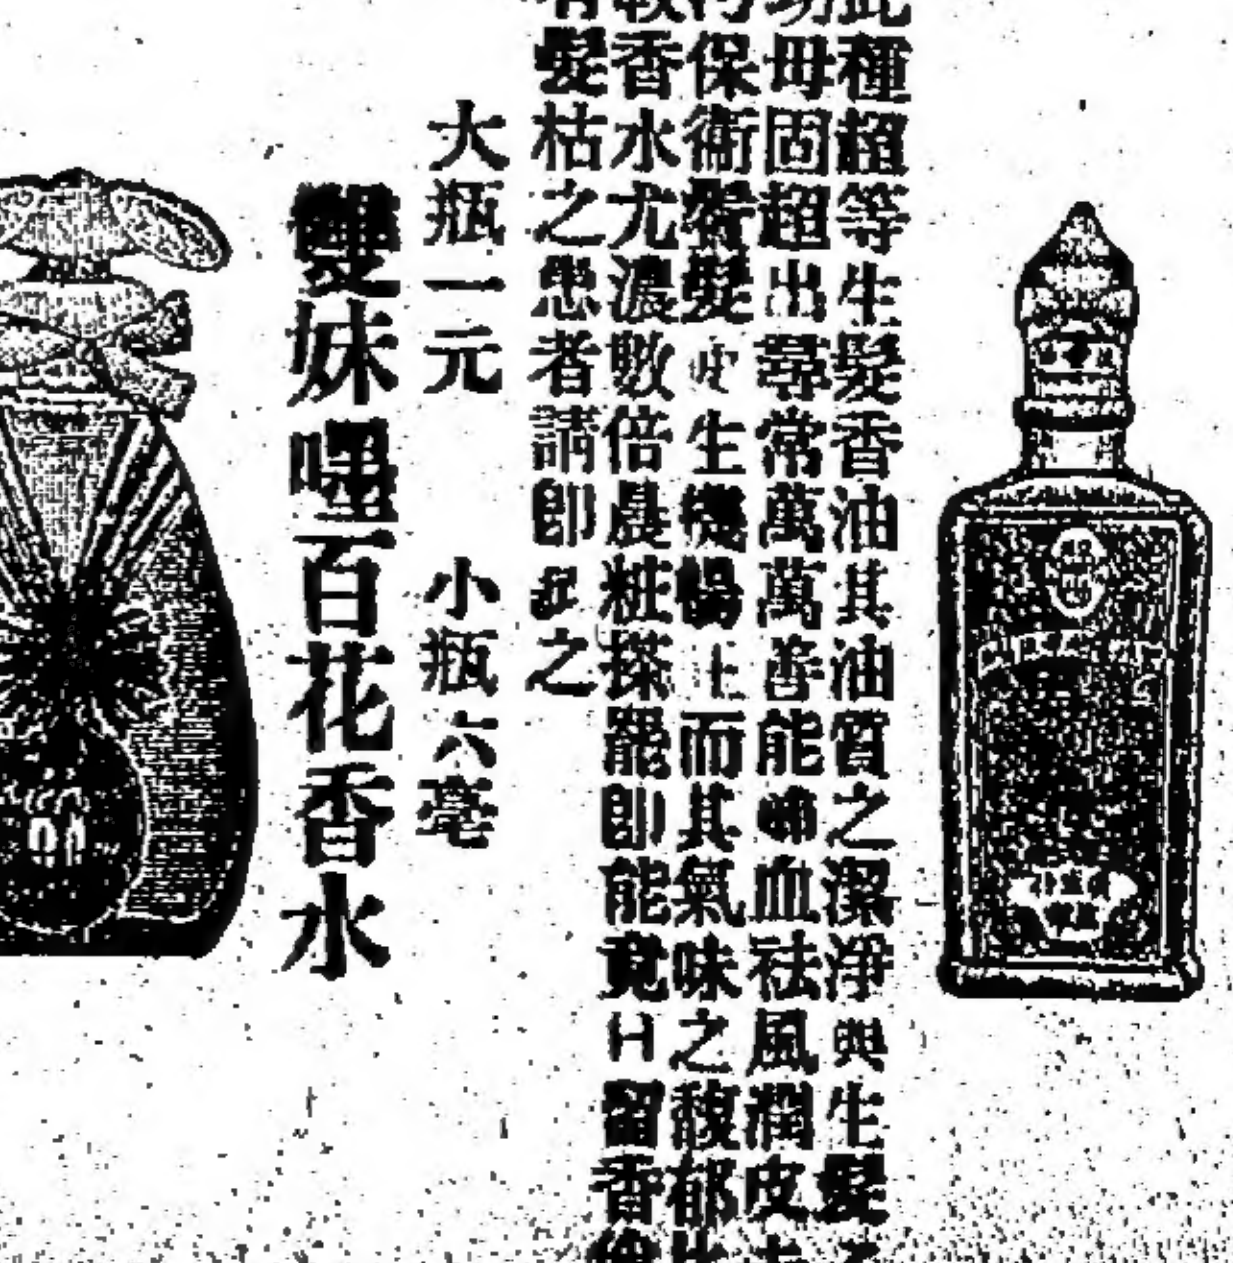 此種超等生髮香油其油質之潔淨與生髮之
功毋固超出尋常萬萬善能 血祛風潤皮去
污保衛鬢髮 生機暢 而其氣味之馥郁比
較香水尤濃數倍晨粧搽罷即能竟日留香
有髮枯之患者請即試之
大瓶一元 小瓶六毫
雙妹嘜百花香水